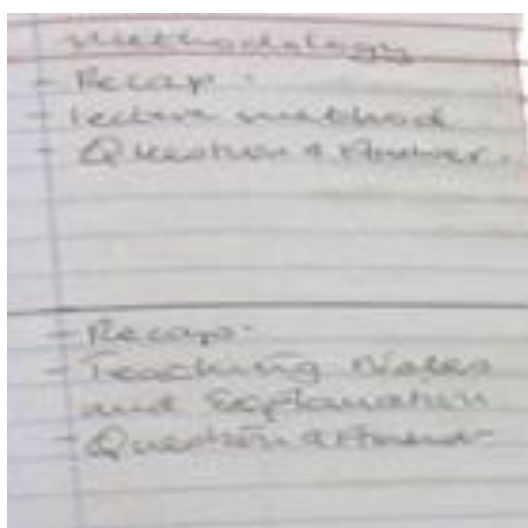 methodology
- Recap.
- lecture method
- Question & Answer.
- Recap.
- Teaching Notes
and Explanation
- Question & Answer